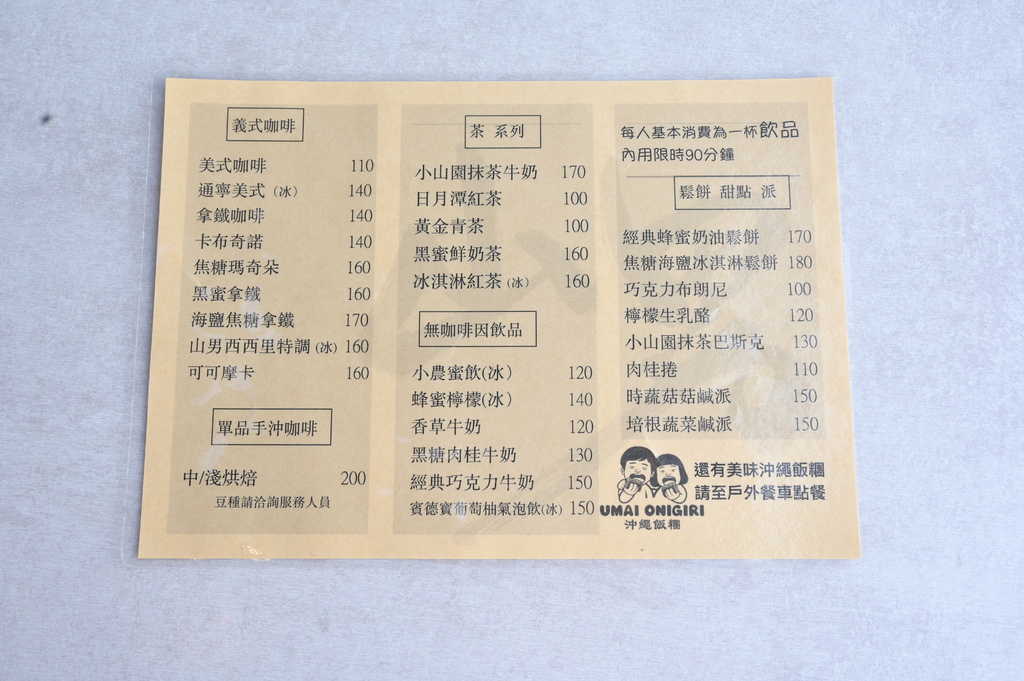 義式咖啡
美式咖啡 110
通寧美式(冰) 140
拿鐵咖啡 140
卡布奇諾 140
焦糖瑪奇朵 160
黑蜜拿鐵 160
海鹽焦糖拿鐵 170
山男西西里特調(冰) 160
可可摩卡 160
單品手沖咖啡
中/淺烘焙 200
豆種請洽詢服務人員
茶 系列
小山園抹茶牛奶 170
日月潭紅茶 100
黃金青茶 100
黑蜜鮮奶茶 160
冰淇淋紅茶(冰) 160
無咖啡因飲品
小農蜜飲(冰) 120
蜂蜜檸檬(冰) 140
香草牛奶 120
黑糖肉桂牛奶 130
經典巧克力牛奶 150
賓德寶葡萄柚氣泡飲(冰) 150
每人基本消費為一杯飲品
內用限時90分鐘
鬆餅 甜點 派
經典蜂蜜奶油鬆餅 170
焦糖海鹽冰淇淋鬆餅 180
巧克力布朗尼 100
檸檬生乳酪 120
小山園抹茶巴斯克 130
肉桂捲 110
時蔬菇菇鹹派 150
培根蔬菜鹹派 150
還有美味沖繩飯糰
請至戶外餐車點餐
UMAI ONIGIRI
沖繩飯糰